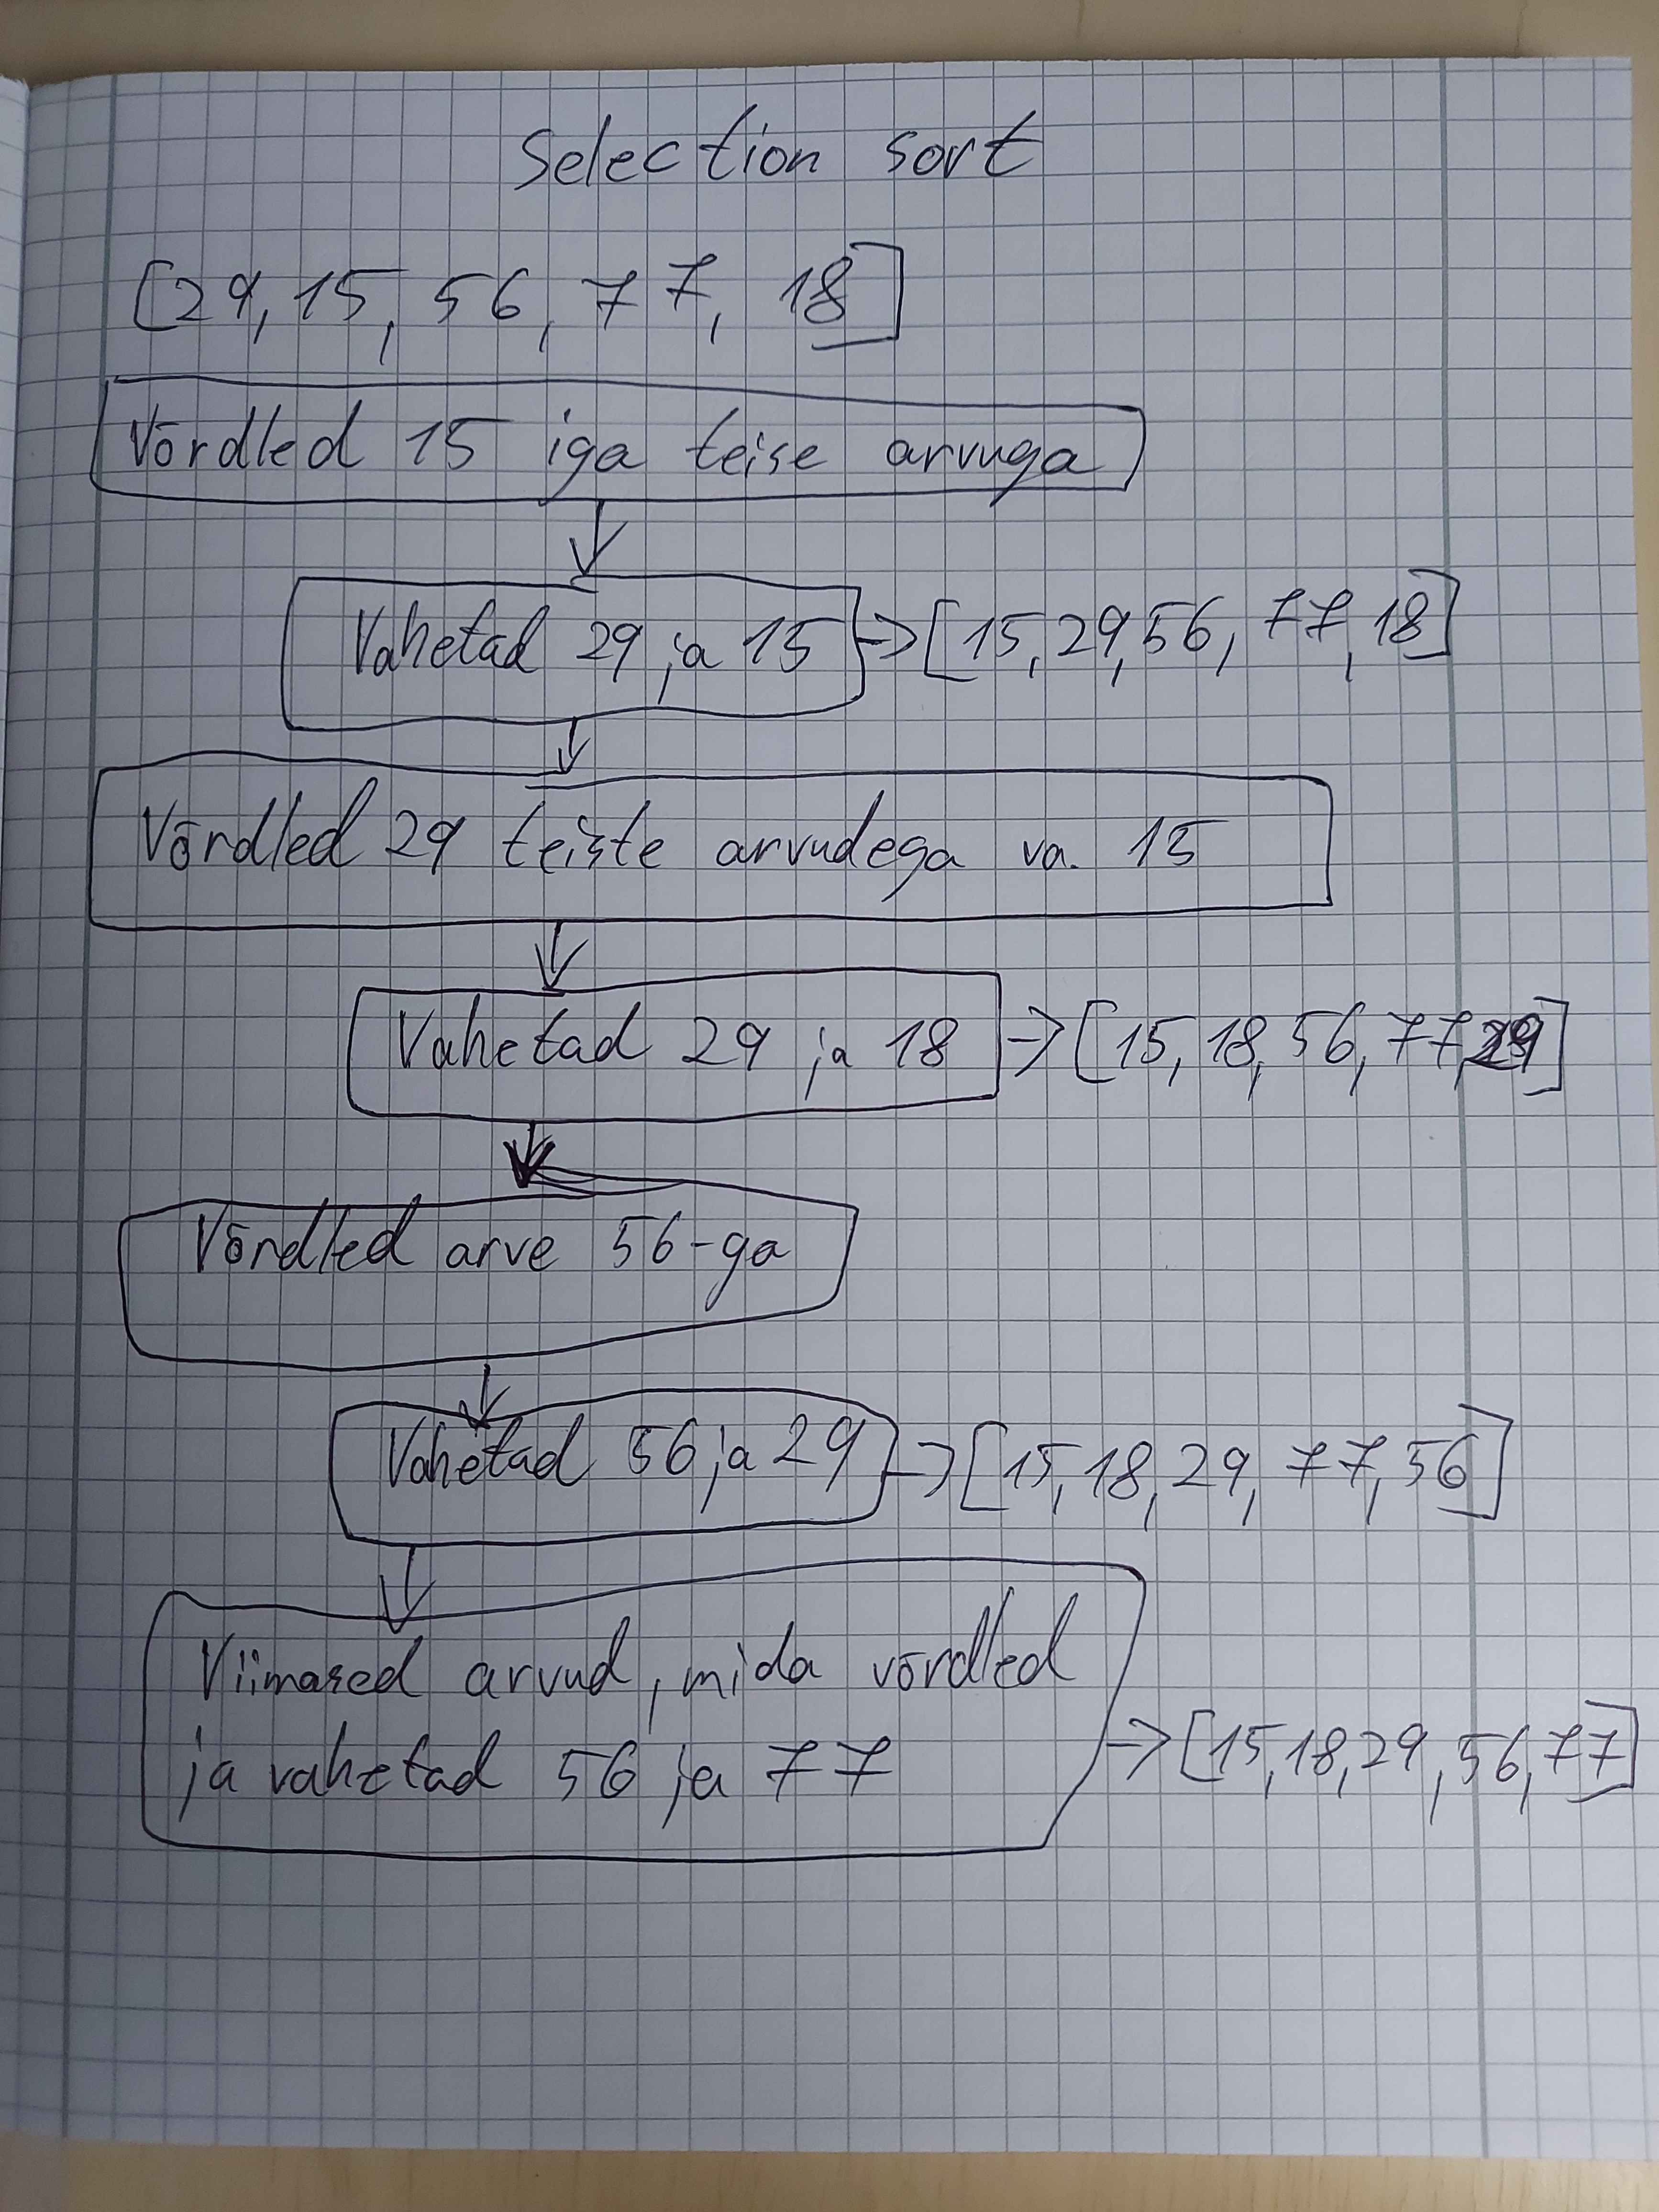 Selection sort
[29, 15, 56, 77, 18]
Võrdled 15 iga teise arvuga
Vahetad 29 ja 15 -> [15, 29, 56, 77, 18]
Võrdled 29 teiste arvudega va. 15
Vahetad 29 ja 18 -> [15, 18, 56, 77, 29]
Võrdled arve 56-ga
Vahetad 56 ja 29 -> [15, 18, 29, 77, 56]
Viimased arvud, mida võrdled
ja vahetad 56 ja 77 -> [15, 18, 29, 56, 77]